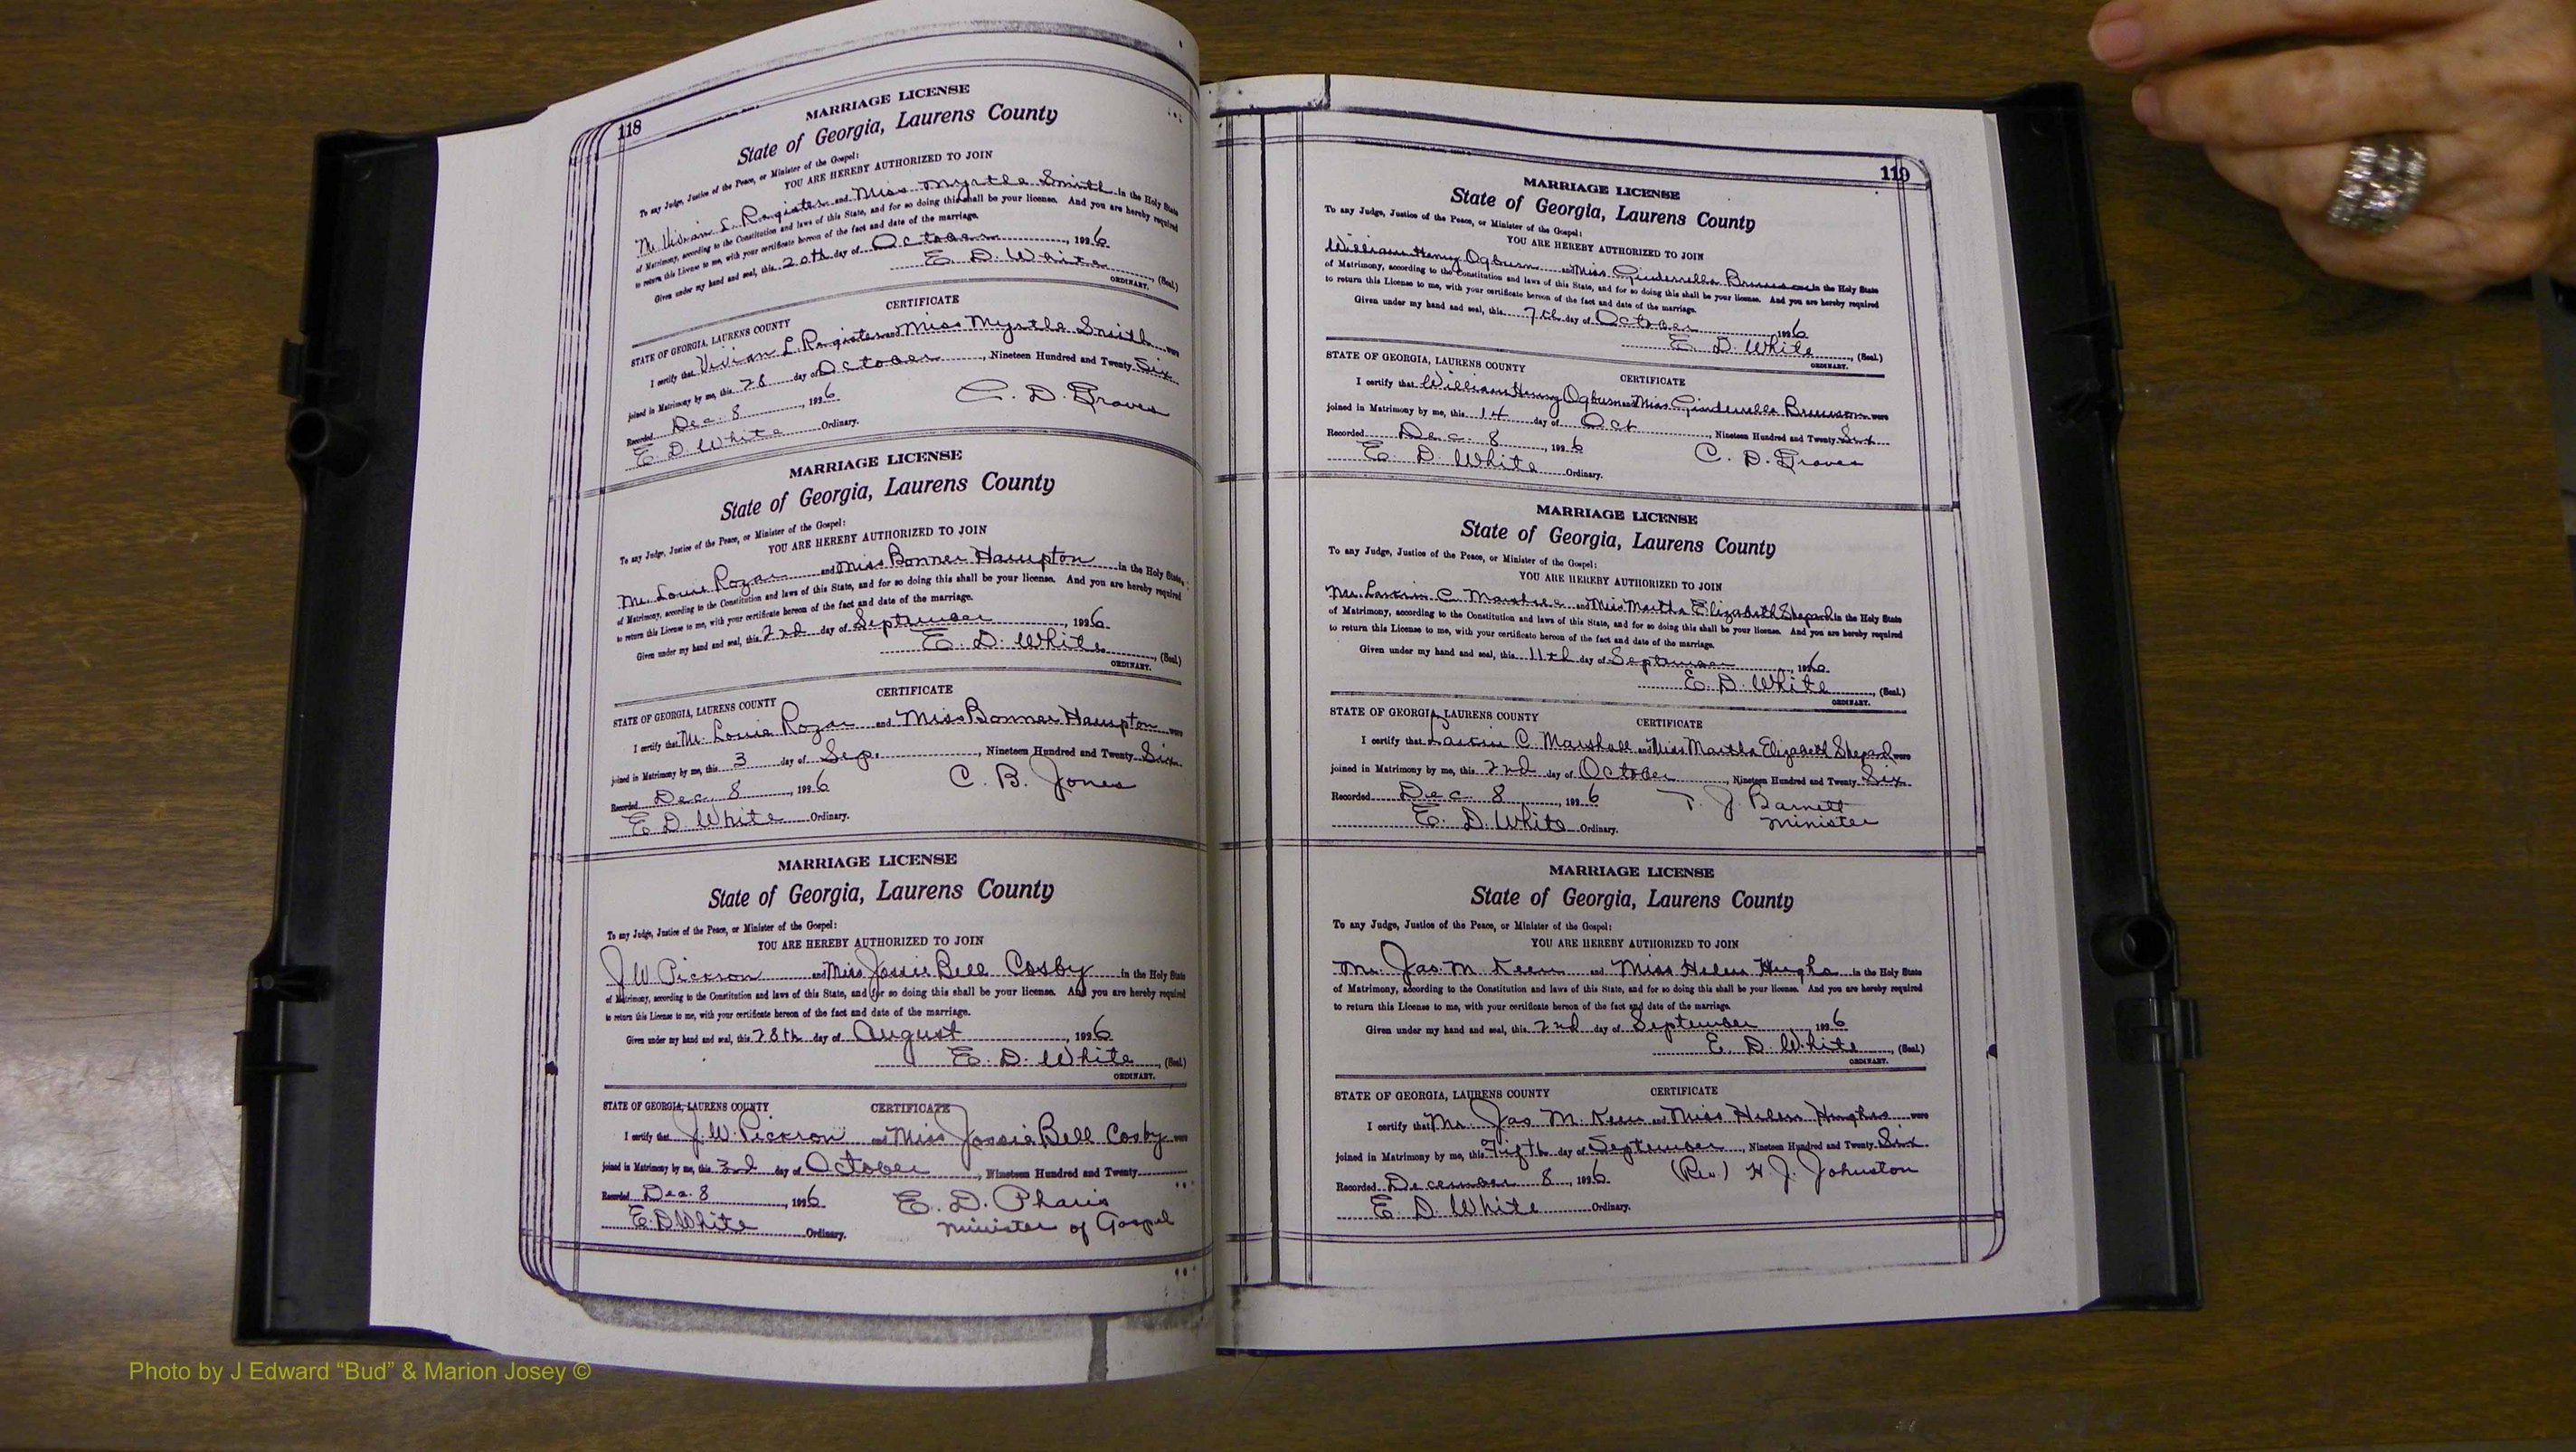 118
MARRIAGE LICENSE
State of Georgia, Laurens County
To any Judge, Justice of the Peace, or Minister of the Gospel:
YOU ARE HEREBY AUTHORIZED TO JOIN
Mr. Vivian L. Register and Miss Myrtle Smith in the Holy State
of Matrimony, according to the Constitution and laws of this State, and for so doing this shall be your license. And you are hereby required
to return this License to me, with your certificate hereon of the fact and date of the marriage.
Given under my hand and seal, this 20th day of October, 1926
E. D. White (Seal.)
ORDINARY.
CERTIFICATE
STATE OF GEORGIA, LAURENS COUNTY
I certify that Vivian L. Register and Miss Myrtle Smith were
joined in Matrimony by me, this 28 day of October, Nineteen Hundred and Twenty Six
Recorded Dec 8, 1926
C. D. Graves
E. D. White Ordinary.
MARRIAGE LICENSE
State of Georgia, Laurens County
To any Judge, Justice of the Peace, or Minister of the Gospel:
YOU ARE HEREBY AUTHORIZED TO JOIN
Mr. Louie Rozar and Miss Bonner Hampton in the Holy State,
of Matrimony, according to the Constitution and laws of this State, and for so doing this shall be your license. And you are hereby required
to return this License to me, with your certificate hereon of the fact and date of the marriage.
Given under my hand and seal, this 2nd day of September, 1926
E. D. White, (Seal.)
ORDINARY.
CERTIFICATE
STATE OF GEORGIA, LAURENS COUNTY
I certify that Mr. Louie Rozar and Miss Bonner Hampton were
joined in Matrimony by me, this 3 day of Sep., Nineteen Hundred and Twenty Six
Recorded Dec. 8, 1926
C. B. Jones
E. D. White Ordinary.
MARRIAGE LICENSE
State of Georgia, Laurens County
To any Judge, Justice of the Peace, or Minister of the Gospel:
YOU ARE HEREBY AUTHORIZED TO JOIN
J. W. Pickron and Miss Jossie Bell Cosby in the Holy State
of Matrimony, according to the Constitution and laws of this State, and for so doing this shall be your license. And you are hereby required
to return this License to me, with your certificate hereon of the fact and date of the marriage.
Given under my hand and seal, this 28th day of August, 1926
E. D. White, (Seal.)
ORDINARY.
STATE OF GEORGIA, LAURENS COUNTY CERTIFICATE
I certify that J. W. Pickron and Miss Jossie Bell Cosby were
joined in Matrimony by me, this 3rd day of October, Nineteen Hundred and Twenty
Recorded Dec. 8, 1926
E. D. Pharis
Minister of Gospel
E. D. White Ordinary.
119
MARRIAGE LICENSE
State of Georgia, Laurens County
To any Judge, Justice of the Peace, or Minister of the Gospel:
YOU ARE HEREBY AUTHORIZED TO JOIN
William Henry Ogburn and Miss Cinderrella in the Holy State
of Matrimony, according to the Constitution and laws of this State, and for so doing this shall be your license. And you are hereby required
to return this License to me, with your certificate hereon of the fact and date of the marriage.
Given under my hand and seal, this 7th day of October, 1926
E. D. White, (Seal.)
ORDINARY.
STATE OF GEORGIA, LAURENS COUNTY CERTIFICATE
I certify that William Henry Ogburn and Miss Cinderella were
joined in Matrimony by me, this 14 day of Oct, Nineteen Hundred and Twenty Six
Recorded Dec 8, 1926
C. D. Graves
E. D. White Ordinary.
MARRIAGE LICENSE
State of Georgia, Laurens County
To any Judge, Justice of the Peace, or Minister of the Gospel:
YOU ARE HEREBY AUTHORIZED TO JOIN
Mr. C. and Miss Martha Elizabeth Shepard in the Holy State
of Matrimony, according to the Constitution and laws of this State, and for so doing this shall be your license. And you are hereby required
to return this License to me, with your certificate hereon of the fact and date of the marriage.
Given under my hand and seal, this 11th day of September, 1926
E. D. White, (Seal.)
ORDINARY.
STATE OF GEORGIA, LAURENS COUNTY CERTIFICATE
I certify that C. Marshall and Miss Martha Elizabeth Shepard were
joined in Matrimony by me, this 2nd day of October, Nineteen Hundred and Twenty Six
Recorded Dec 8, 1926
T. J. Barnett
Minister
E. D. White Ordinary.
MARRIAGE LICENSE
State of Georgia, Laurens County
To any Judge, Justice of the Peace, or Minister of the Gospel:
YOU ARE HEREBY AUTHORIZED TO JOIN
Mr. Jas. M. Keen and Miss Helen Hughs in the Holy State
of Matrimony, according to the Constitution and laws of this State, and for so doing this shall be your license. And you are hereby required
to return this License to me, with your certificate hereon of the fact and date of the marriage.
Given under my hand and seal, this 2nd day of September, 1926
E. D. White, (Seal.)
ORDINARY.
STATE OF GEORGIA, LAURENS COUNTY CERTIFICATE
I certify that Mr Jas M. Keen and Miss Helen Hughes were
joined in Matrimony by me, this Fifth day of September, Nineteen Hundred and Twenty Six
Recorded December 8, 1926
(Rev.) H. J. Johnston
E. D. White Ordinary.
Photo by J Edward "Bud" & Marion Josey ©